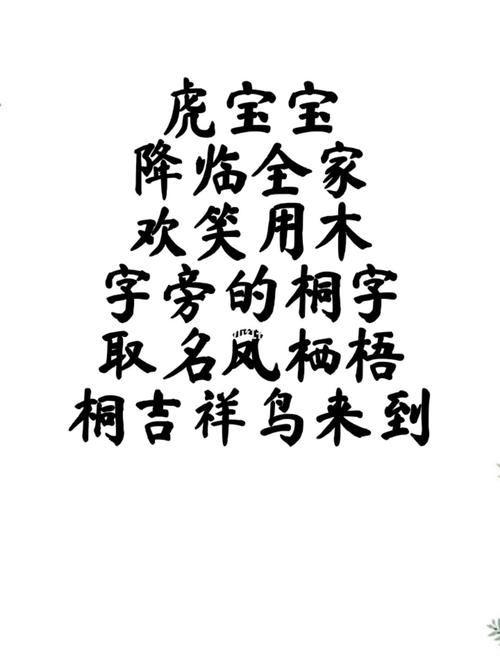 虎宝宝
降临全家
欢笑用木
字旁的桐字
取名凤栖梧
桐吉祥鸟来到